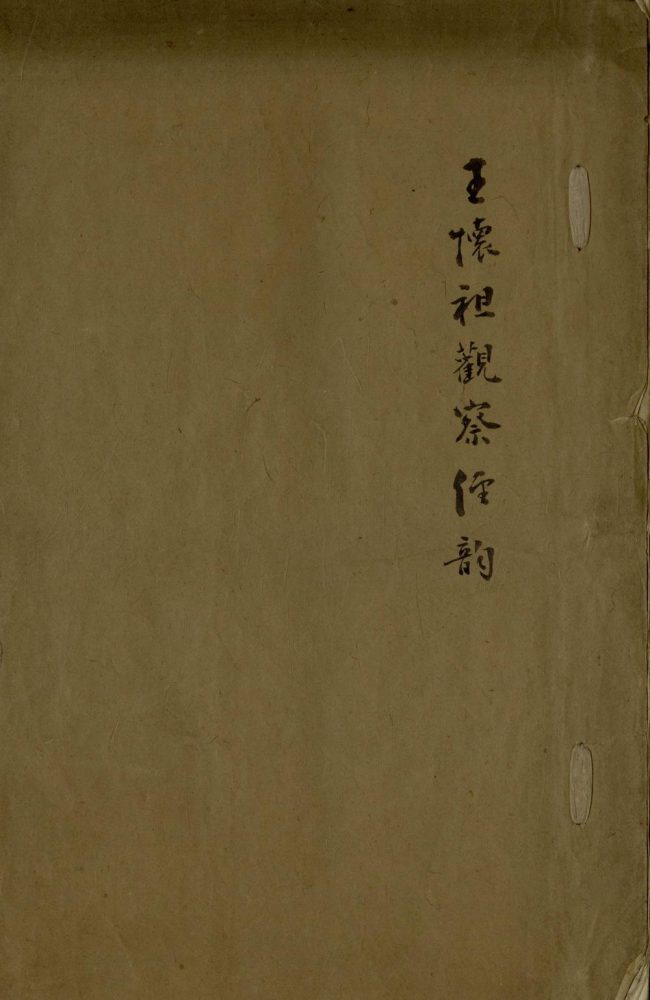 王懷祖觀察侄韵